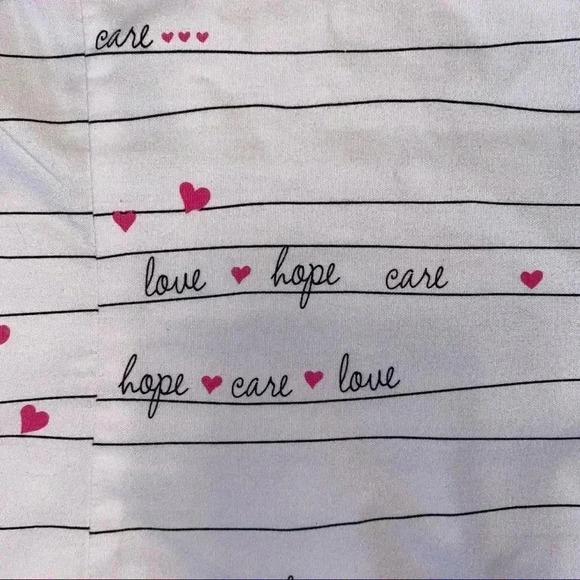 care ♥♥♥
love ♥ hope care ♥
hope ♥ care ♥ love